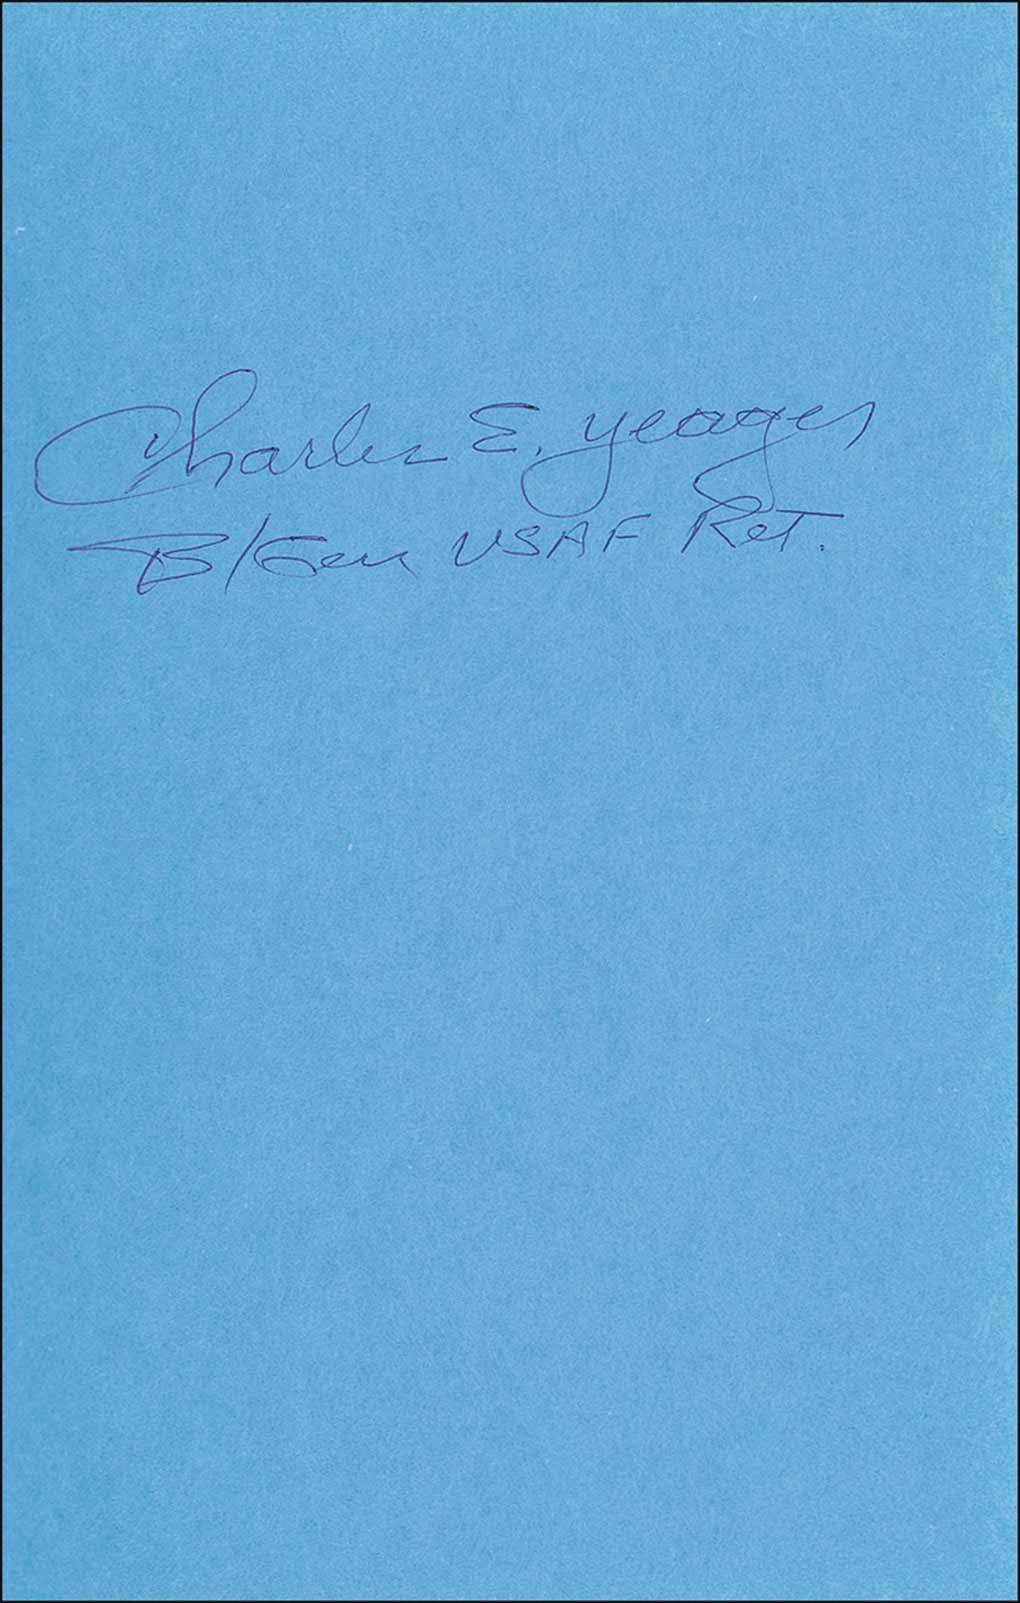 Charles E. Yeager
B/Gen USAF Ret.